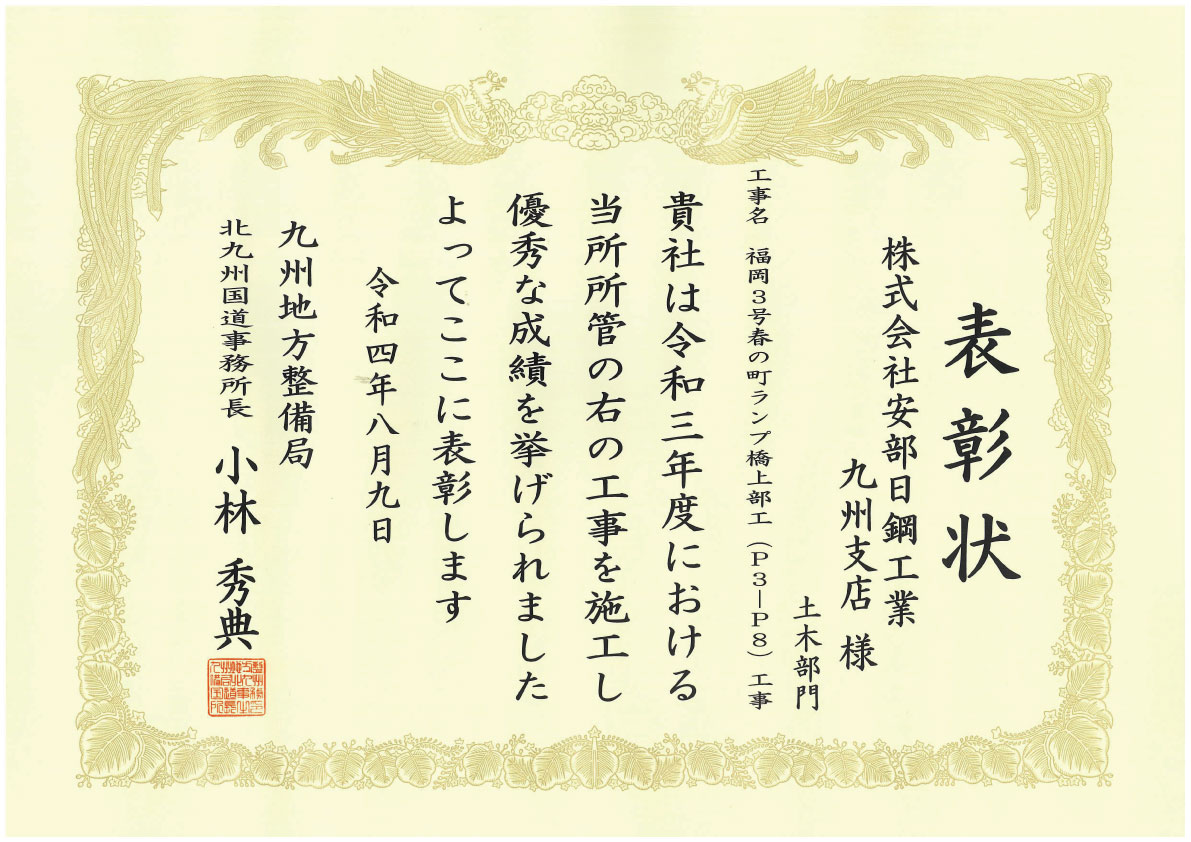 表彰状
株式会社安部日鋼工業
九州支店 様
土木部門
工事名 福岡3号春の町ランプ橋上部工(P3―P8)工事
貴社は令和三年度における
当所所管の右の工事を施工し
優秀な成績を挙げられました
よってここに表彰します
令和四年八月九日
九州地方整備局
北九州国道事務所長 小林 秀典